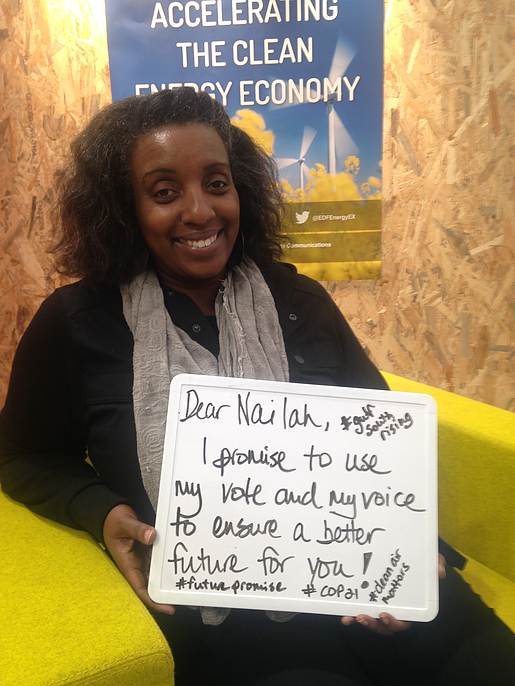 ACCELERATING
THE CLEAN
ENERGY ECONOMY
@EDFEnergyEX
Communications
Dear Nailah, #gulf
south
rising
I promise to use
my vote and my voice
to ensure a better
future for you!
#futurepromise #COP21 #clean air
matters